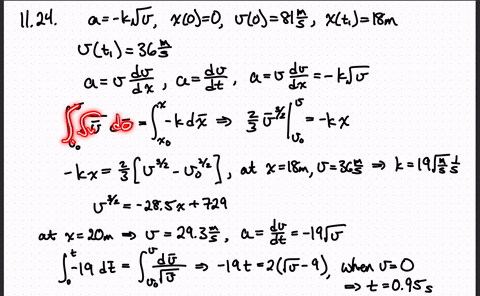 11.24. a=-k√v, x(0)=0, v(0)=81 m/s, x(t₁)=18m
v(t₁)=36 m/s
a=v dv/dx, a=dv/dt, a=v dv/dx=-k√v
∫_{v₀}^{v} √v̄ dv̄ = ∫_{x₀}^{x} -k dx̄ ⇒ 2/3 v̄^{3/2} |_{v₀}^{v} = -kx
-kx = 2/3 [v^{3/2} - v₀^{3/2}], at x=18m, v=36 m/s ⇒ k=19 √(m/s) 1/s
v^{3/2} = -28.5x+729
at x=20m ⇒ v=29.3 m/s, a=dv/dt=-19√v
∫_0^t -19 dt̄ = ∫_{v₀}^{v} dv̄/√v̄ ⇒ -19t=2(√v-9), when v=0
⇒ t=0.95s